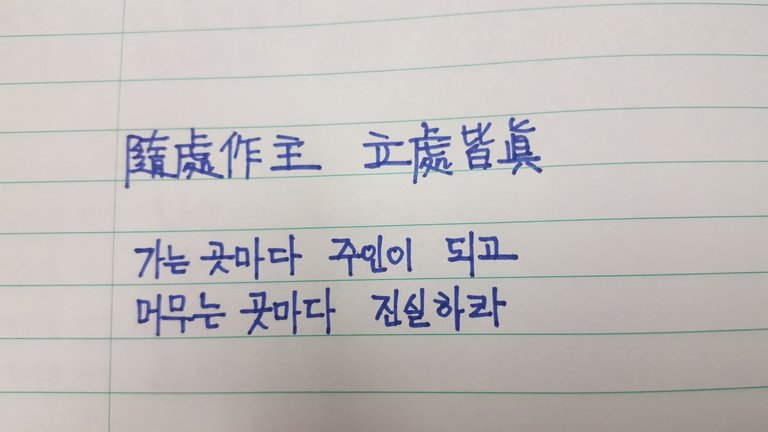 隨處作主 立處皆眞
가는 곳마다 주인이 되고
머무는 곳마다 진실하라